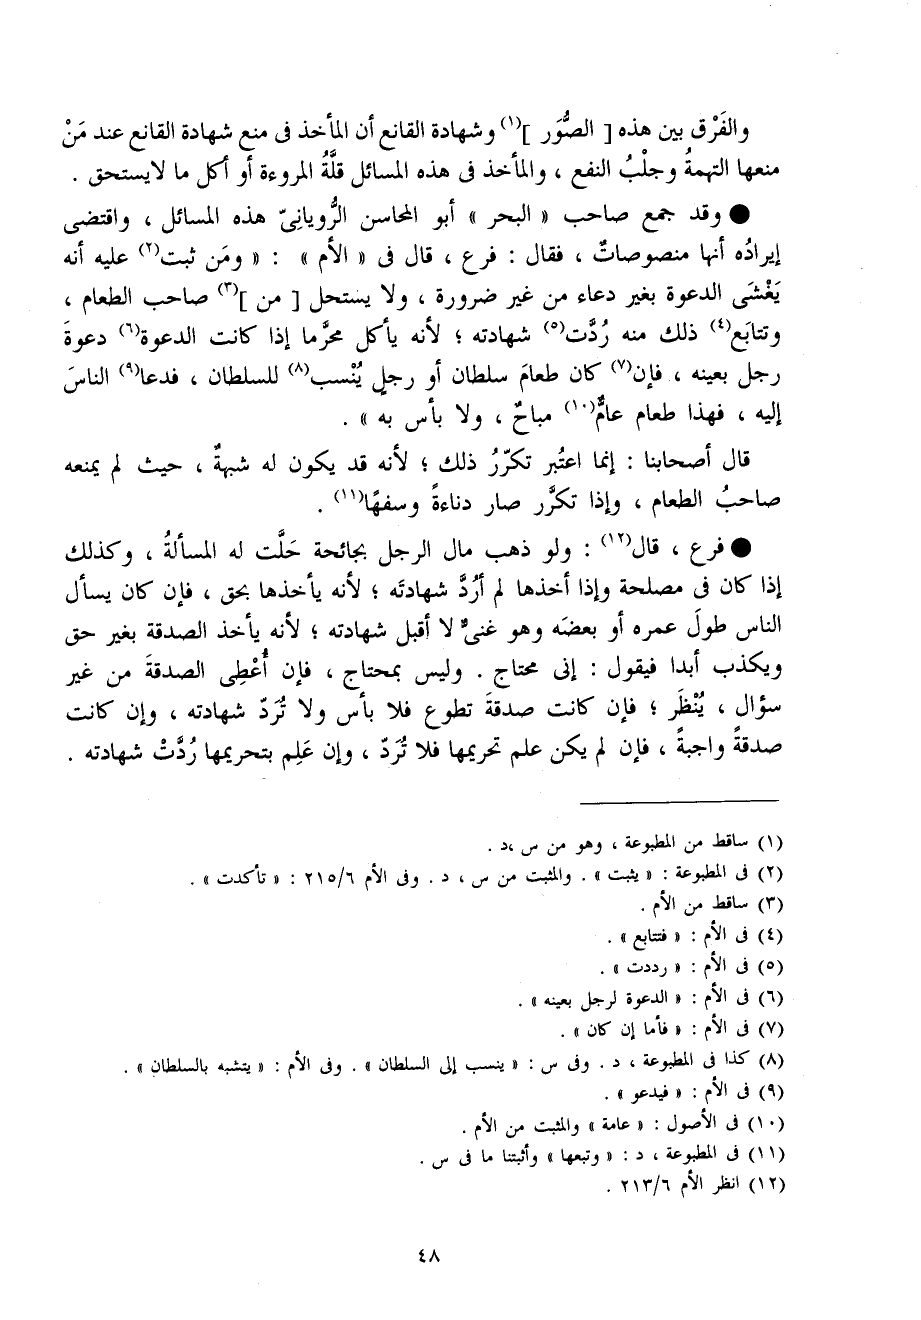 والفَرْق بين هذه [ الصُّوَر ]⁽¹⁾ وشهادة القانع أن المأخذ فى منع شهادة القانع عند مَنْ
منعها التهمةُ وجلْبُ النفع ، والمأخذ فى هذه المسائل قلَّةُ المروءة أو أكل ما لايستحق .
● وقد جمع صاحب « البحر » أبو المحاسن الرُّويانِىّ هذه المسائل ، واقتضى
إيرادُه أنها منصوصاتٌ ، فقال : فرع ، قال فى « الأم » : « ومَن ثبت(٢) عليه أنه
يَغْشَى الدعوة بغير دعاء من غير ضرورة ، ولا يستحل [ من ](٣) صاحب الطعام ،
وتتابَع(٤) ذلك منه رُدَّت(٥) شهادته ؛ لأنه يأكل محرَّما إذا كانت الدعوة(٦) دعوةَ
رجل بعينه ، فإن(٧) كان طعامَ سلطان أو رجلٍ يُنْسب(٨) للسلطان ، فدعا(٩) الناسَ
إليه ، فهذا طعام عامٌّ(١٠) مباحٌ ، ولا بأس به » .
قال أصحابنا : إنما اعتُبر تكرّرُ ذلك ؛ لأنه قد يكون له شبهةٌ ، حيث لم يمنعه
صاحبُ الطعام ، وإذا تكرَّر صار دناءةً وسفهًا(١١) .
● فرع ، قال(١٢) : ولو ذهب مال الرجل بجائحة حَلَّت له المسألةُ ، وكذلك
إذا كان فى مصلحة وإذا أخذها لم أرُدَّ شهادتَه ؛ لأنه يأخذها بحق ، فإن كان يسأل
الناس طولَ عمره أو بعضَه وهو غنىٌّ لا أقبل شهادته ؛ لأنه يأخذ الصدقة بغير حق
ويكذب أبدا فيقول : إنى محتاج . وليس بمحتاج ، فإن أُعْطِى الصدقةَ من غير
سؤال ، يُنْظَر ؛ فإن كانت صدقةَ تطوع فلا بأس ولا تُرَدّ شهادته ، وإن كانت
صدقةً واجبةً ، فإن لم يكن علم تحريمها فلا تُرَدّ ، وإن عَلِم بتحريمها رُدَّتْ شهادته .
(١) ساقط من المطبوعة ، وهو من س ،د .
(٢) فى المطبوعة : « يثبت » . والمثبت من س ، د . وفى الأم ٢١٥/٦ : « تأكدت » .
(٣) ساقط من الأم .
(٤) فى الأم : « فتتابع » .
(٥) فى الأم : « رددت » .
(٦) فى الأم : « الدعوة لرجل بعينه » .
(٧) فى الأم : « فأما إن كان » .
(٨) كذا فى المطبوعة ، د . وفى س : « ينسب إلى السلطان » . وفى الأم : « يتشبه بالسلطان » .
(٩) فى الأم : « فيدعو » .
(١٠) فى الأصول : « عامة » والمثبت من الأم .
(١١) فى المطبوعة ، د : « وتبعها » وأثبتنا ما فى س .
(١٢) انظر الأم ٢١٣/٦ .
٤٨